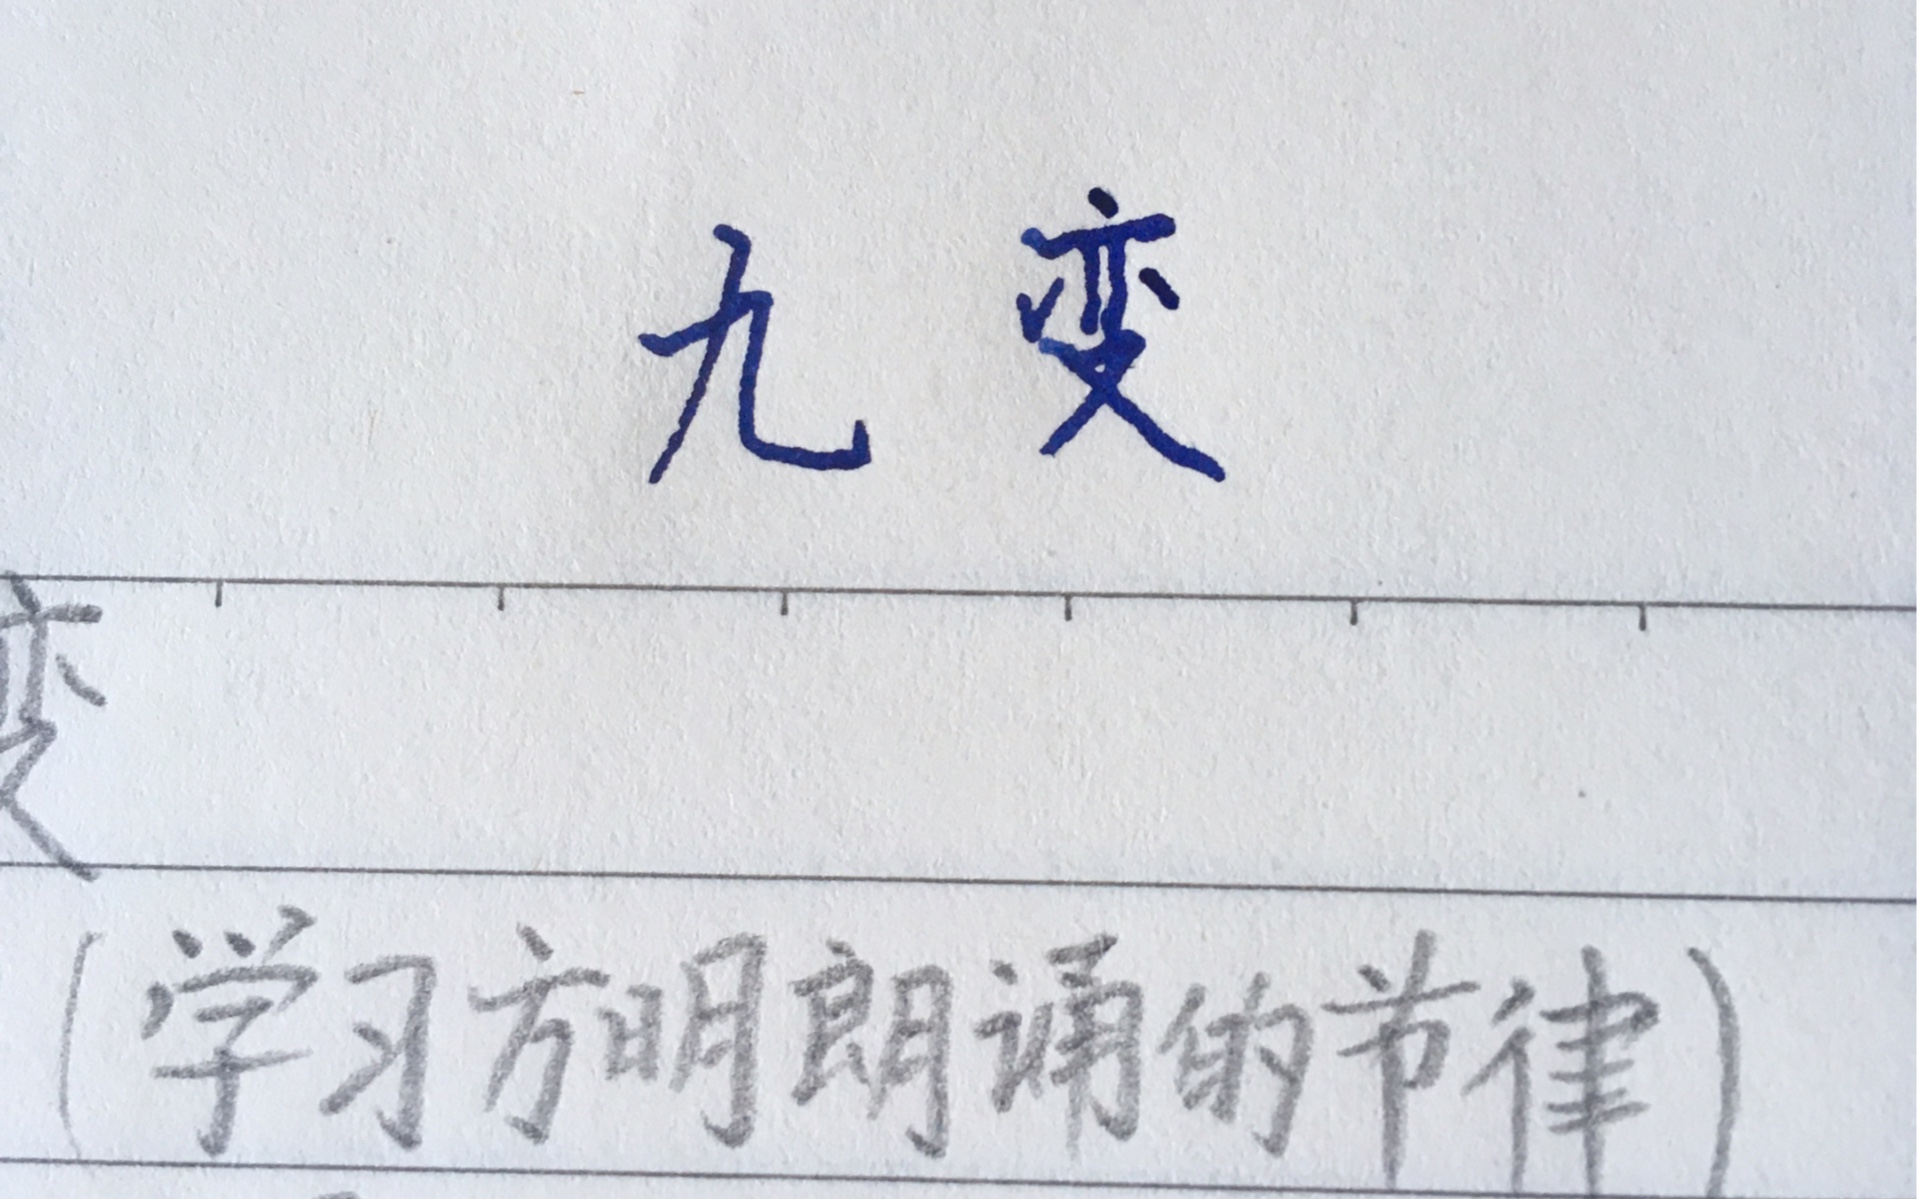 九变
变
(学习方明朗诵的节律)